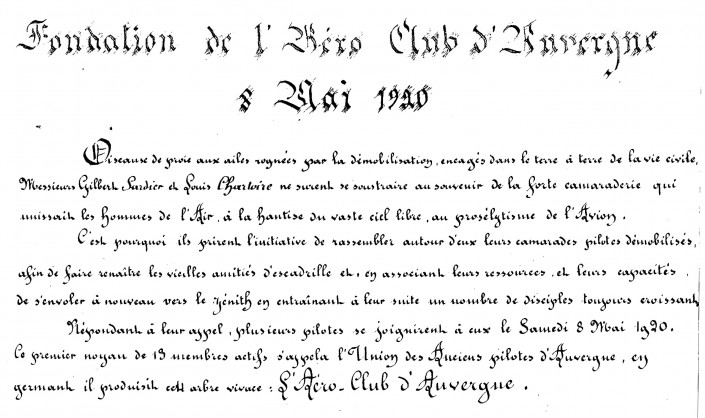 Fondation de l'Aéro Club d'Auvergne
8 Mai 1920
Oiseaux de proie aux ailes rognées par la démobilisation, encagés dans le terre à terre de la vie civile,
Messieurs Gilbert Sardier et Louis Chartoire ne surent se soustraire au souvenir de la forte camaraderie qui
unissait les hommes de l'Air, à la hantise du vaste ciel libre, au prosélytisme de l'Avion.
C'est pourquoi ils prirent l'initiative de rassembler autour d'eux leurs camarades pilotes démobilisés,
afin de faire renaître les vieilles amitiés d'escadrille et, en associant leurs ressources, et leurs capacités,
de s'envoler à nouveau vers le zénith en entraînant à leur suite un nombre de disciples toujours croissant
Répondant à leur appel, plusieurs pilotes se joignirent à eux le Samedi 8 Mai 1920.
Ce premier noyau de 13 membres actifs s'appela l'Union des Anciens pilotes d'Auvergne, en
germant il produisit cett arbre vivace : L'Aéro-Club d'Auvergne.